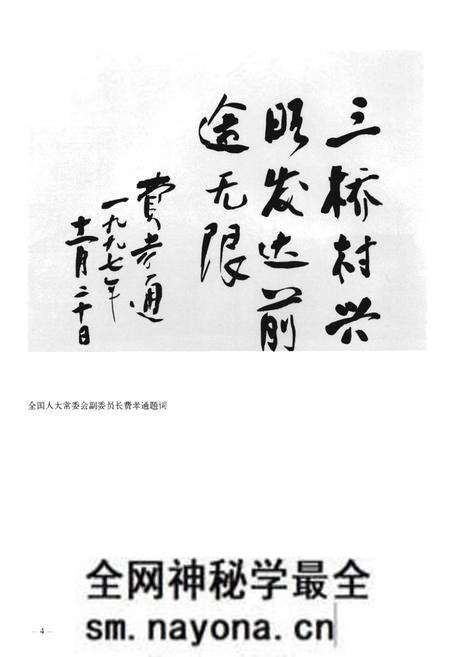 三桥村兴
旺发达前
途无限
费孝通
一九九七年
十一月二十日
全国人大常委会副委员长费孝通题词
全网神秘学最全
4
sm.nayona.cn